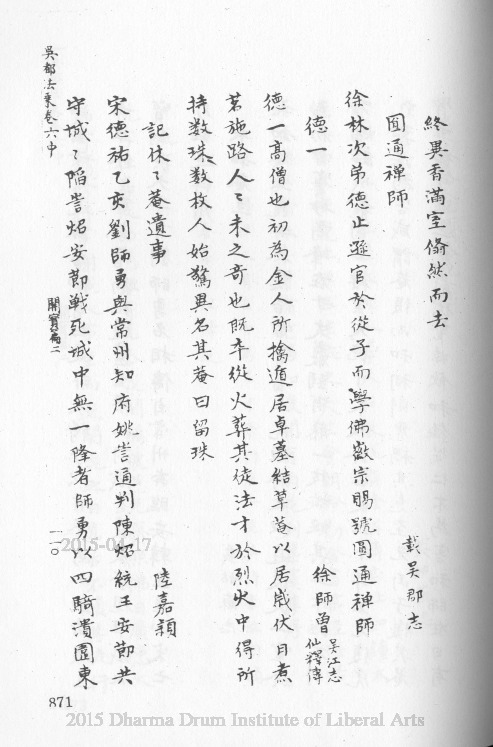 終異香滿室翛然而去
載吳郡志
圓通禪師
徐林次弟德止遜官於從子而學佛徽宗賜號圓通禪師
德一
徐師曾 吳江志 仙釋傳
德一高僧也初為金人所擒遁居卓墓結草菴以居歲伏日煮
茗施路人〻未之奇也既卒從火葬其徒法才於烈火中得所
持数珠〻数枚人始驚異名其菴曰留珠
記休〻菴遺事
陸嘉穎
宋德祐乙亥劉師勇與常州知府姚訔通判陳炤統王安節共
守城〻陷訔炤安節戰死城中無一降者師勇以四騎潰圍東
吳都法乘卷六中
開寳篇二
一一〇
871
2015-04-17
2015 Dharma Drum Institute of Liberal Arts